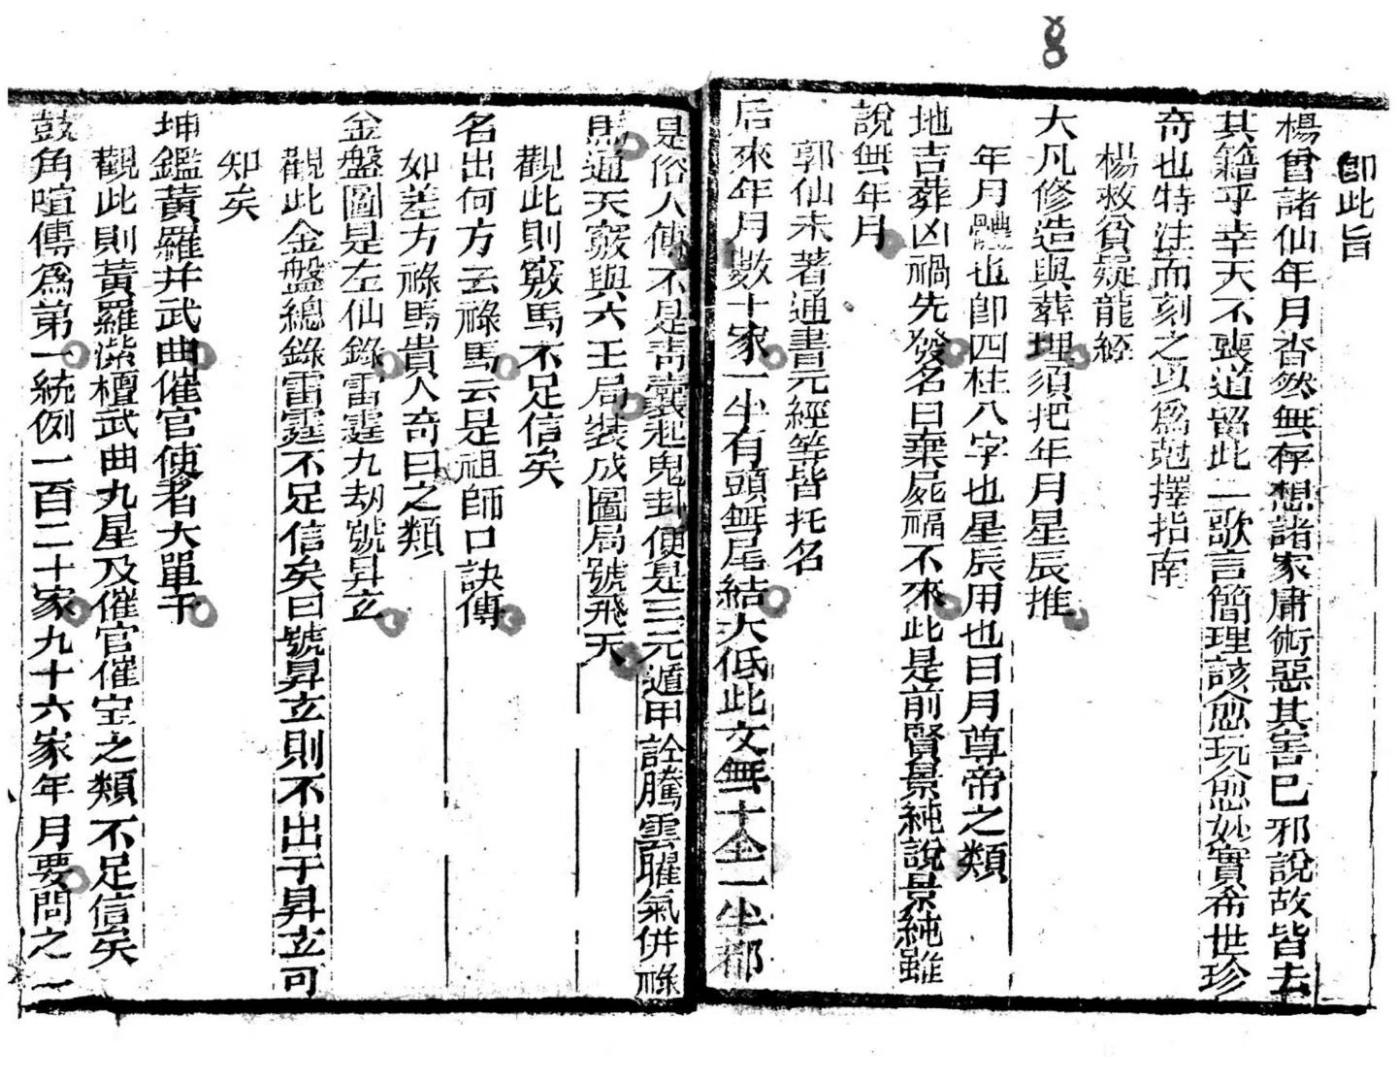 即此旨
楊曾諸仙年月杳然無存想諸家庸術惡其害已邪說故皆去
其籍乎幸天不喪道留此一歌言簡理該愈玩愈妙實希世珍
奇也特注而刻之以為尅擇指南
楊救貧疑龍經
大凡修造與葬埋須把年月星辰推
年月體也即四柱八字也星辰用也日月尊帝之類
地吉葬凶禍先發名曰棄屍福不來此是前賢景純說景純雖
說無年月
郭仙未著通書元經等皆托名
后來年月數十家一半有頭無尾結大低此文無十全一半都
是俗人傳不是青囊起鬼卦便是三元遁甲詮騰雲曜氣併祿
馬通天竅與六壬局裝成圖局號飛天
觀此則竅馬不足信矣
名出何方云祿馬云是祖師口訣傳
如差方祿馬貴人奇曰之類
金盤圖是左仙錄雷霆九劫號昇立
觀此金盤總錄雷霆不足信矣曰號昇立則不出于昇立可
知矣
坤鑑黃羅并武曲催官使者大單于
觀此則黃羅滎檀武曲九星及催官催宝之類不足信矣
鼓角喧傳為第一統例一百二十家九十六家年月要問之一